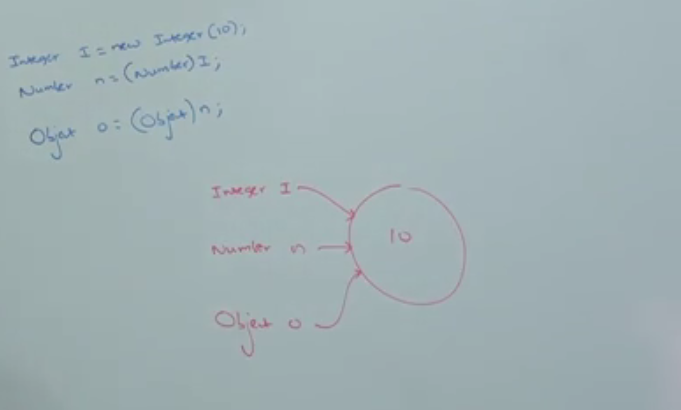 Integer I = new Integer(10);
Number n = (Number)I;
Object o = (Object)n;
Integer I
10
Number n
Object o